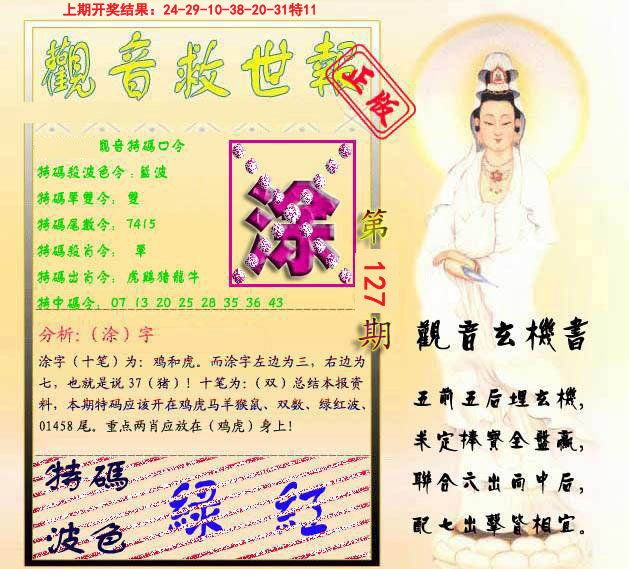 上期开奖结果：24-29-10-38-20-31特11
觀音救世報
正版
觀音特碼口令
特碼殺波色令：藍波
特碼單雙令：雙
特碼尾數令：7415
特碼殺肖令：單
特碼出肖令：虎鷄猪龍牛
特中碼令：07 13 20 25 28 35 36 43
涂
第
127
期
分析：（涂）字
涂字（十笔）为：鸡和虎。而涂字左边为三，右边为
七，也就是说 37（猪）！十笔为：（双）总结本报资
料，本期特码应该开在鸡虎马羊猴鼠、双数、绿红波、
01458 尾。重点两肖应放在（鸡虎）身上！
特碼
波色
綠 紅
觀音玄機書
五前五后埋玄機，
未定捧寶全盤贏，
聯合六出而中后，
配七出擊皆相宜。